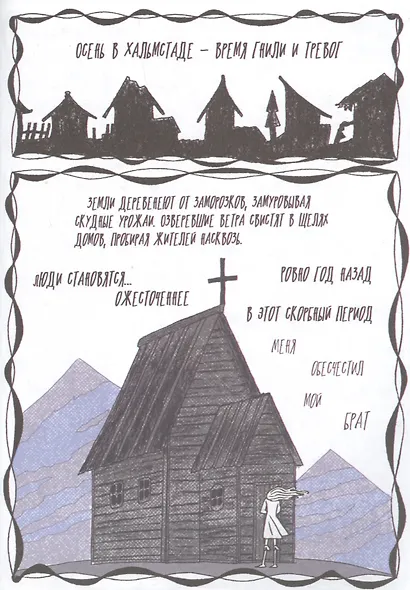 ОСЕНЬ В ХАЛЬМСТАДЕ – ВРЕМЯ ГНИЛИ И ТРЕВОГ
ЗЕМЛИ ДЕРЕВЕНЕЮТ ОТ ЗАМОРОЗКОВ, ЗАМУРОВЫВАЯ
СКУДНЫЕ УРОЖАИ. ОЗВЕРЕВШИЕ ВЕТРА СВИСТЯТ В ЩЕЛЯХ
ДОМОВ, ПРОБИРАЯ ЖИТЕЛЕЙ НАСКВОЗЬ.
ЛЮДИ СТАНОВЯТСЯ...
ОЖЕСТОЧЕННЕЕ
РОВНО ГОД НАЗАД
В ЭТОТ СКОРБНЫЙ ПЕРИОД
МЕНЯ
ОБЕСЧЕСТИЛ
МОЙ
БРАТ